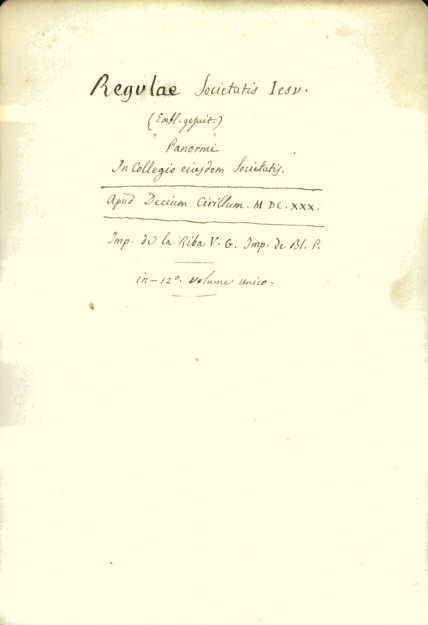 Regulae Societatis Iesu.
(Embl. gesuit.)
Panormi
In Collegio eiusdem Societatis.
Apud Decium Cirillum. M DC. XXX.
Imp. de la Riba V. G. Imp. de Bl. P.
in-12º. volume unico.